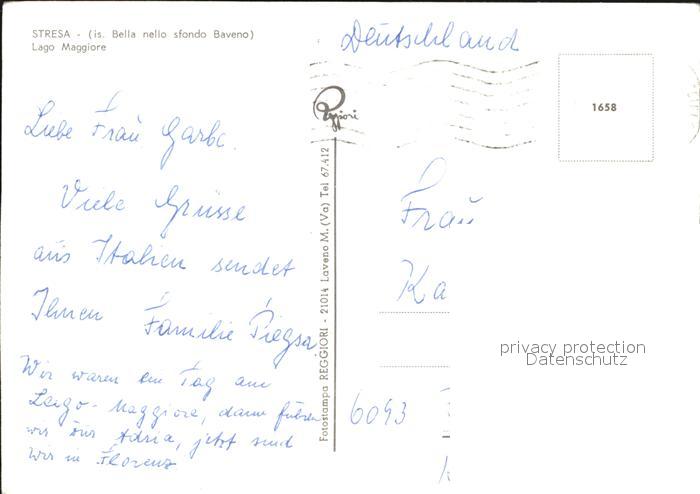 STRESA - (is. Bella nello sfondo Baveno)
Lago Maggiore
Deutschland
Reggiori
1658
Liebe Frau Garbe.
Viele Grüsse
aus Italien sendet
Ihnen Familie Piegsa
Wir waren ein Tag am
Lago-Maggiore, dann fuhren
wir zur Adria, jetzt sind
wir in Florenz
Fotostampa REGGIORI - 21014 Laveno M. (Va) Tel 67.412
Frau
Ka
6093
privacy protection
Datenschutz